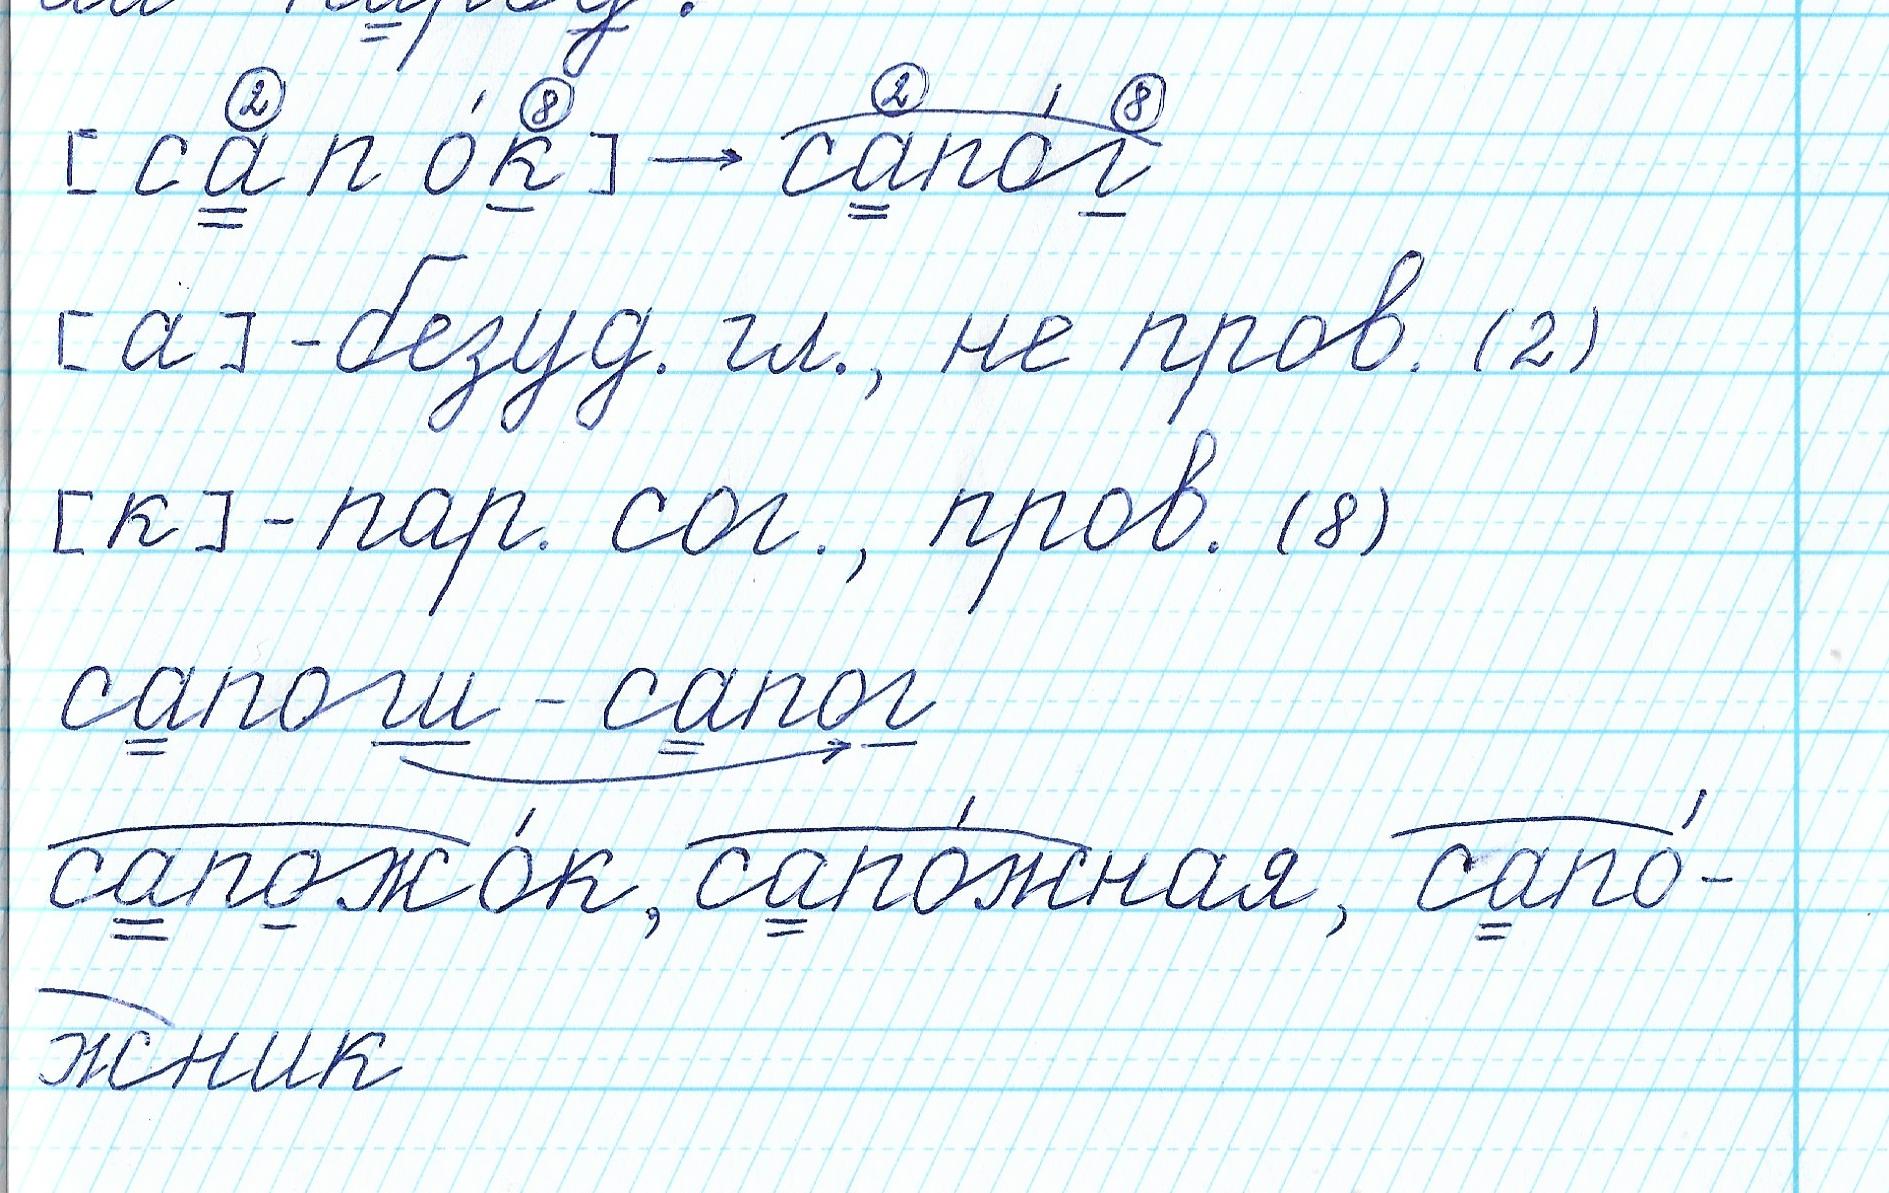 [сапо́к] → сапо́г
[а] - безуд. гл., не пров. (2)
[к] - пар. сог., пров. (8)
сапоги - сапог
сапожо́к, сапо́жная, сапо́-
жник